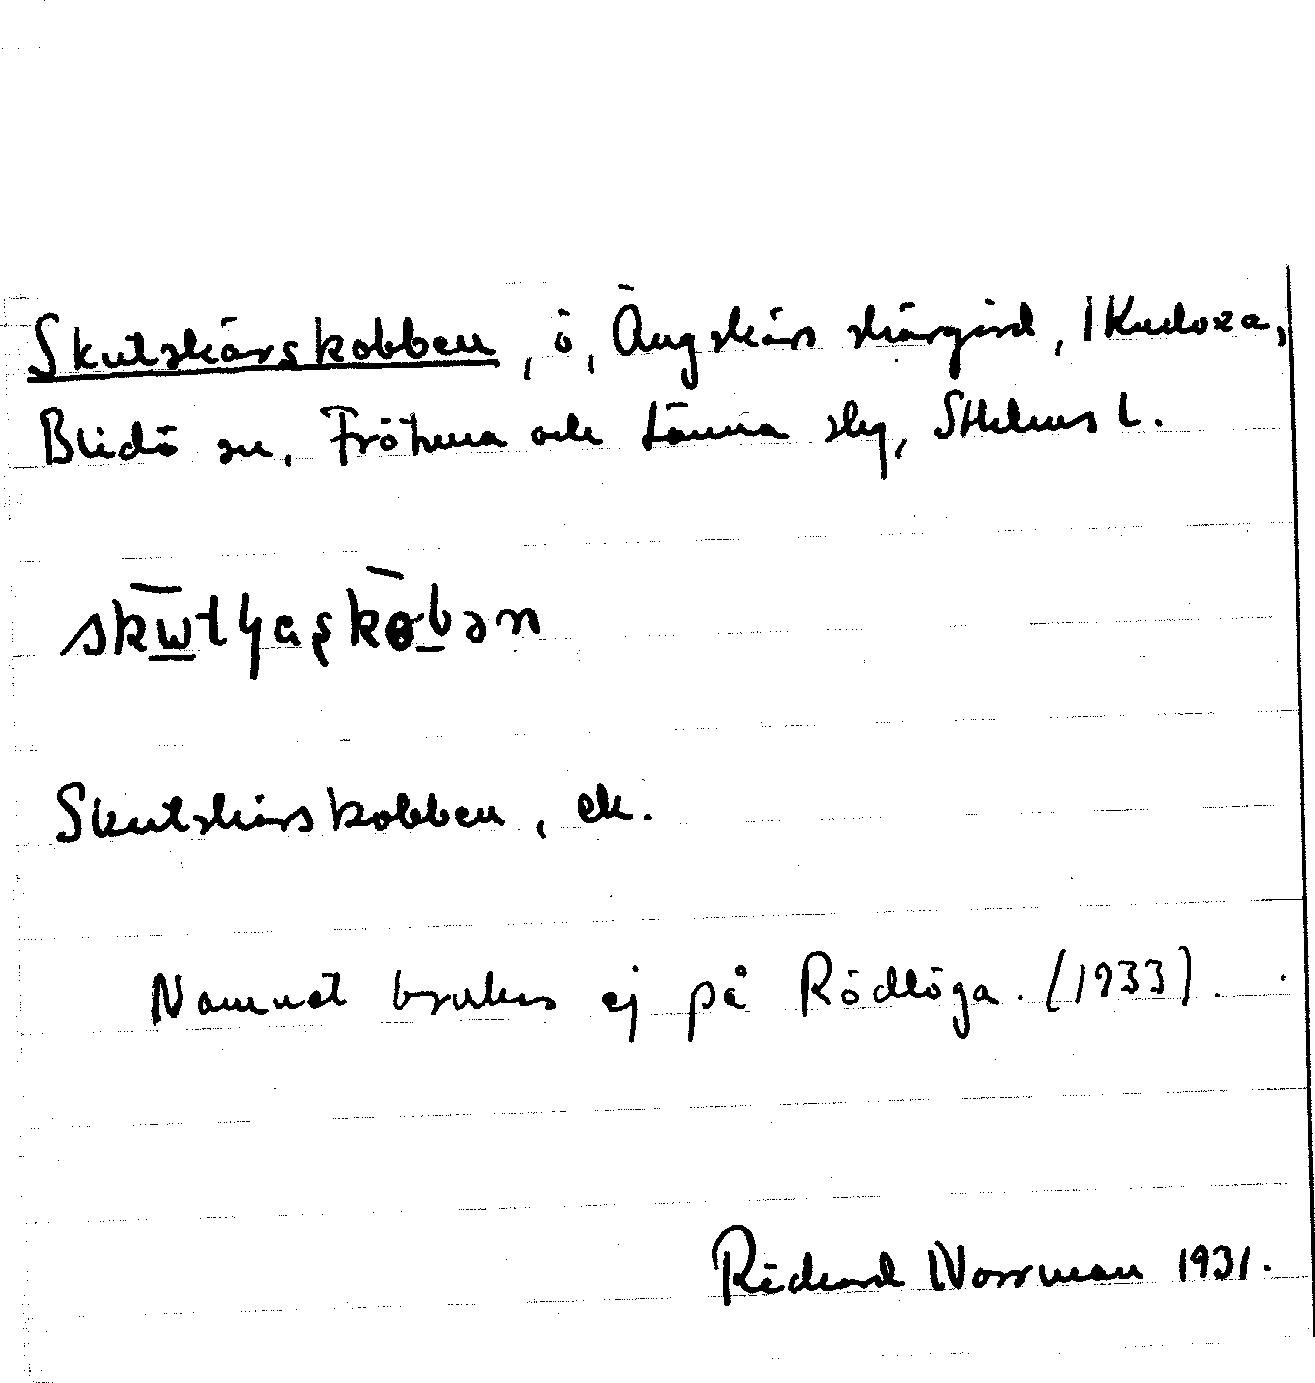 Skutskärskobben, ö, Ängskärs skärgård, Ikudoxa,
Blidö sn, Frötuna och Länna slg, Sthlms l.
Skutskärskobben, ek.
Namnet brukas ej på Rödlöga. (1933).
Rickard Norrman 1931.